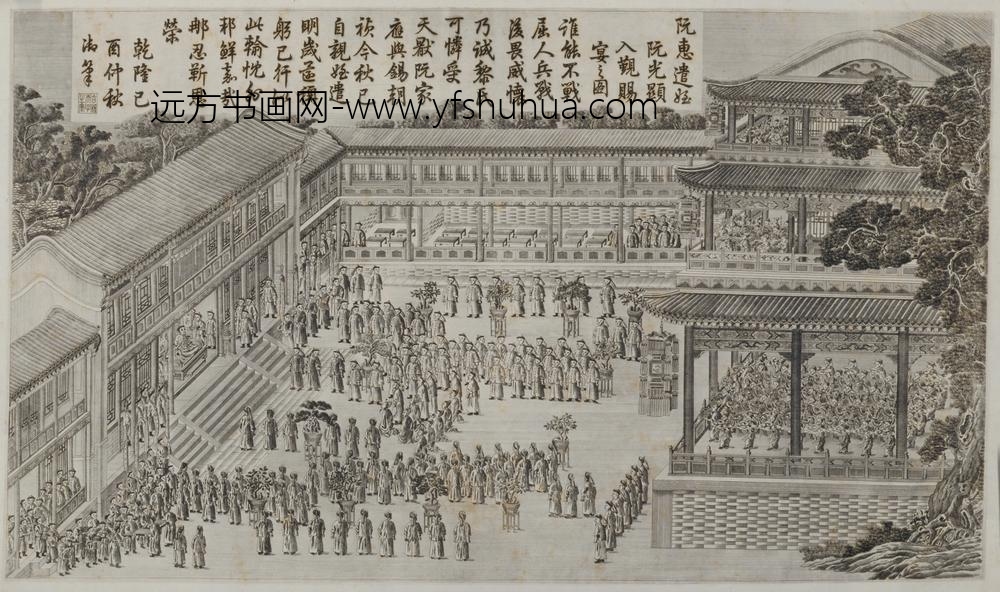 阮惠遣姪
阮光顯
入覲賜
宴之圖
誰能不戰
屈人兵戰
後畏威懷
乃誠黎氏
可憐受
天厭阮家
應與錫朝
禎今秋已
自親姪遣
明歲還
躬己行
此輸忱
邦鮮嘉
那忍靳恩
榮
乾隆己
酉仲秋
御筆
远方书画网-www.yfshuhua.com